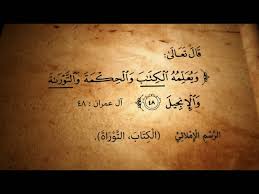 قَالَ تَعَالَىٰ:
﴿ وَيُعَلِّمُهُ الْكِتَٰبَ وَالْحِكْمَةَ وَالتَّوْرَىٰةَ
وَالْإِنجِيلَ ﴿٤٨﴾ آل عمران : ٤٨
الرَّسْم الإِمْلَائِيّ (الكِتَاب، التَّوْرَاة).